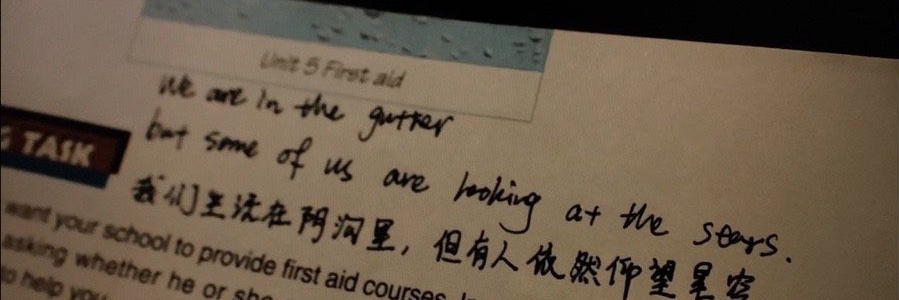 Unit 5 First aid
We are in the gutter
but some of us are looking at the stars.
G TASK
我们生活在阴沟里，但有人依然仰望星空
want your school to provide first aid courses.
asking whether he or she
to help you